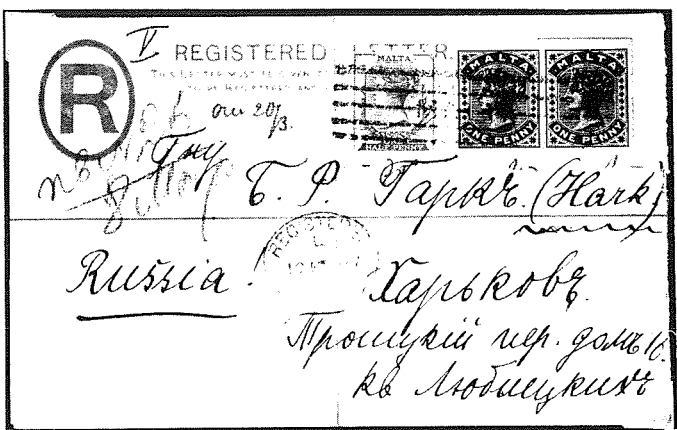 V REGISTERED LETTER.
R
MALTA
HALFPENNY
MALTA
ONE PENNY
MALTA
ONE PENNY
20/3.
Гну
Б. Р. Гаркъ. (Härk)
REGISTERED
Russia
Харьковъ.
Троицкій пер. домъ 16.
кв Любицкихъ